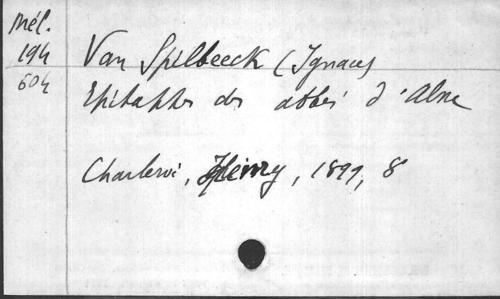 Mél.
194
604
Van Spilbeeck (Ignace)
Epitaphes des abbés d'Alne
Charleroi, Henry, 1899, 8°